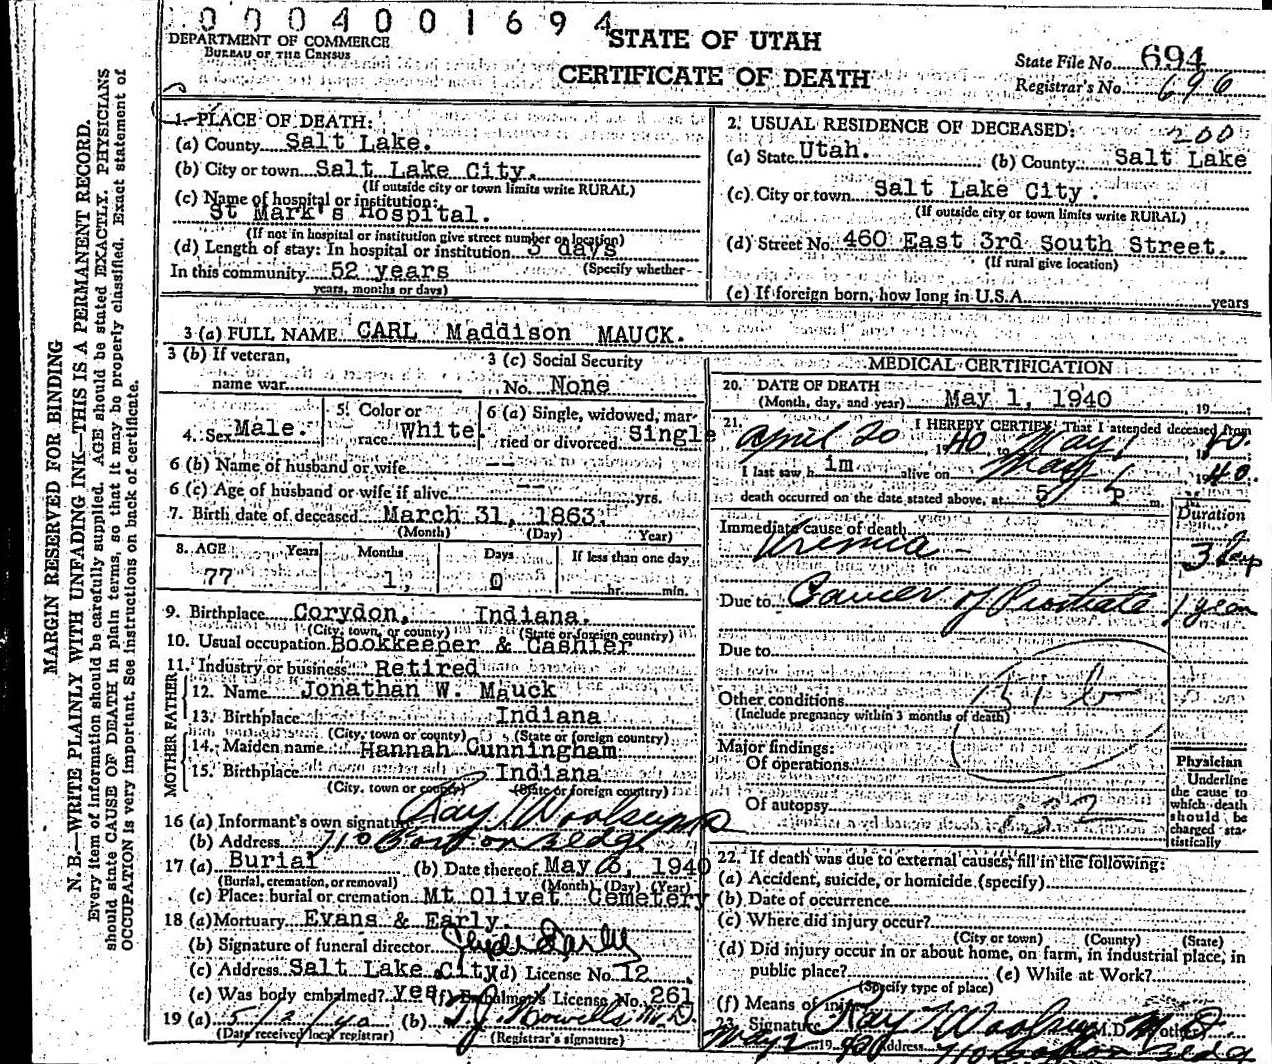 0 0 0 4 0 0 1 6 9 4
DEPARTMENT OF COMMERCE
BUREAU OF THE CENSUS
STATE OF UTAH
CERTIFICATE OF DEATH
State File No. 694
Registrar's No. 696
MARGIN RESERVED FOR BINDING
N. B.—WRITE PLAINLY WITH UNFADING INK—THIS IS A PERMANENT RECORD.
Every item of information should be carefully supplied. AGE should be stated EXACTLY. PHYSICIANS
should state CAUSE OF DEATH in plain terms, so that it may be properly classified. Exact statement of
OCCUPATION is very important. See instructions on back of certificate.
1. PLACE OF DEATH:
(a) County Salt Lake.
(b) City or town Salt Lake City.
(If outside city or town limits write RURAL)
(c) Name of hospital or institution:
St Mark's Hospital.
(If not in hospital or institution give street number or location)
(d) Length of stay: In hospital or institution 3 days
(Specify whether
In this community 52 years
years, months or days)
2. USUAL RESIDENCE OF DECEASED: 200
(a) State Utah. (b) County Salt Lake
(c) City or town Salt Lake City.
(If outside city or town limits write RURAL)
(d) Street No. 460 East 3rd South Street.
(If rural give location)
(e) If foreign born, how long in U.S.A. years
3 (a) FULL NAME CARL Maddison MAUCK.
3 (b) If veteran,
name war
3 (c) Social Security
No. None
4. Sex Male.
5. Color or
race White
6 (a) Single, widowed, mar-
ried or divorced Single
6 (b) Name of husband or wife --
6 (c) Age of husband or wife if alive -- yrs.
7. Birth date of deceased March 31, 1863.
(Month) (Day) Year)
8. AGE Years Months Days If less than one day
77 1, 0 hr. min.
9. Birthplace Corydon, Indiana.
(City, town, or county) (State or foreign country)
10. Usual occupation Bookkeeper & Cashier
11. Industry or business Retired
FATHER
12. Name Jonathan W. Mauck
13. Birthplace Indiana
(City, town or county) (State or foreign country)
MOTHER
14. Maiden name Hannah Cunningham
15. Birthplace Indiana
(City, town or county) (State or foreign country)
16 (a) Informant's own signature Ray T Woolsey MD
(b) Address 710 Boston Bldg
17 (a) Burial (b) Date thereof May 6, 1940
(Burial, cremation, or removal) (Month) (Day) (Year)
(c) Place: burial or cremation Mt Olivet Cemetery
18 (a) Mortuary Evans & Early.
(b) Signature of funeral director
(c) Address Salt Lake City (d) License No. 12
(e) Was body embalmed? yes (f) Embalmer's License No. 261
19 (a) 5/2/40 (b) T. J. Howells M.D.
(Date received local registrar) (Registrar's signature)
MEDICAL CERTIFICATION
20. DATE OF DEATH
(Month, day, and year) May 1, 1940 , 19 ;
21. I HEREBY CERTIFY, That I attended deceased from
April 20 1940 to May 1 1940.
I last saw h im alive on May 1 1940.
death occurred on the date stated above, at 5 P m.
Duration
Immediate cause of death
Uremia - 3 days
Due to Cancer of Prostate 1 year
Due to
Other conditions
(Include pregnancy within 3 months of death)
51 b
Major findings:
Of operations
Of autopsy
132
Physician
Underline
the cause to
which death
should be
charged sta-
tistically
22. If death was due to external causes, fill in the following:
(a) Accident, suicide, or homicide (specify)
(b) Date of occurrence
(c) Where did injury occur?
(City or town) (County) (State)
(d) Did injury occur in or about home, on farm, in industrial place, in
public place? (e) While at Work?
(Specify type of place)
(f) Means of injury
23. Signature Ray T Woolsey M.D.
May 2 1940 Address 710 Boston Bldg